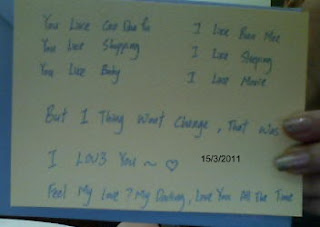 You Like I Like
You Like Shopping I Like Sleeping
You Like Baby I Like Movie
But I Thing Wont Change, That Was
I LOV3 You ~ ♡
15/3/2011
Feel My Love? My Darling, Love You All The Time